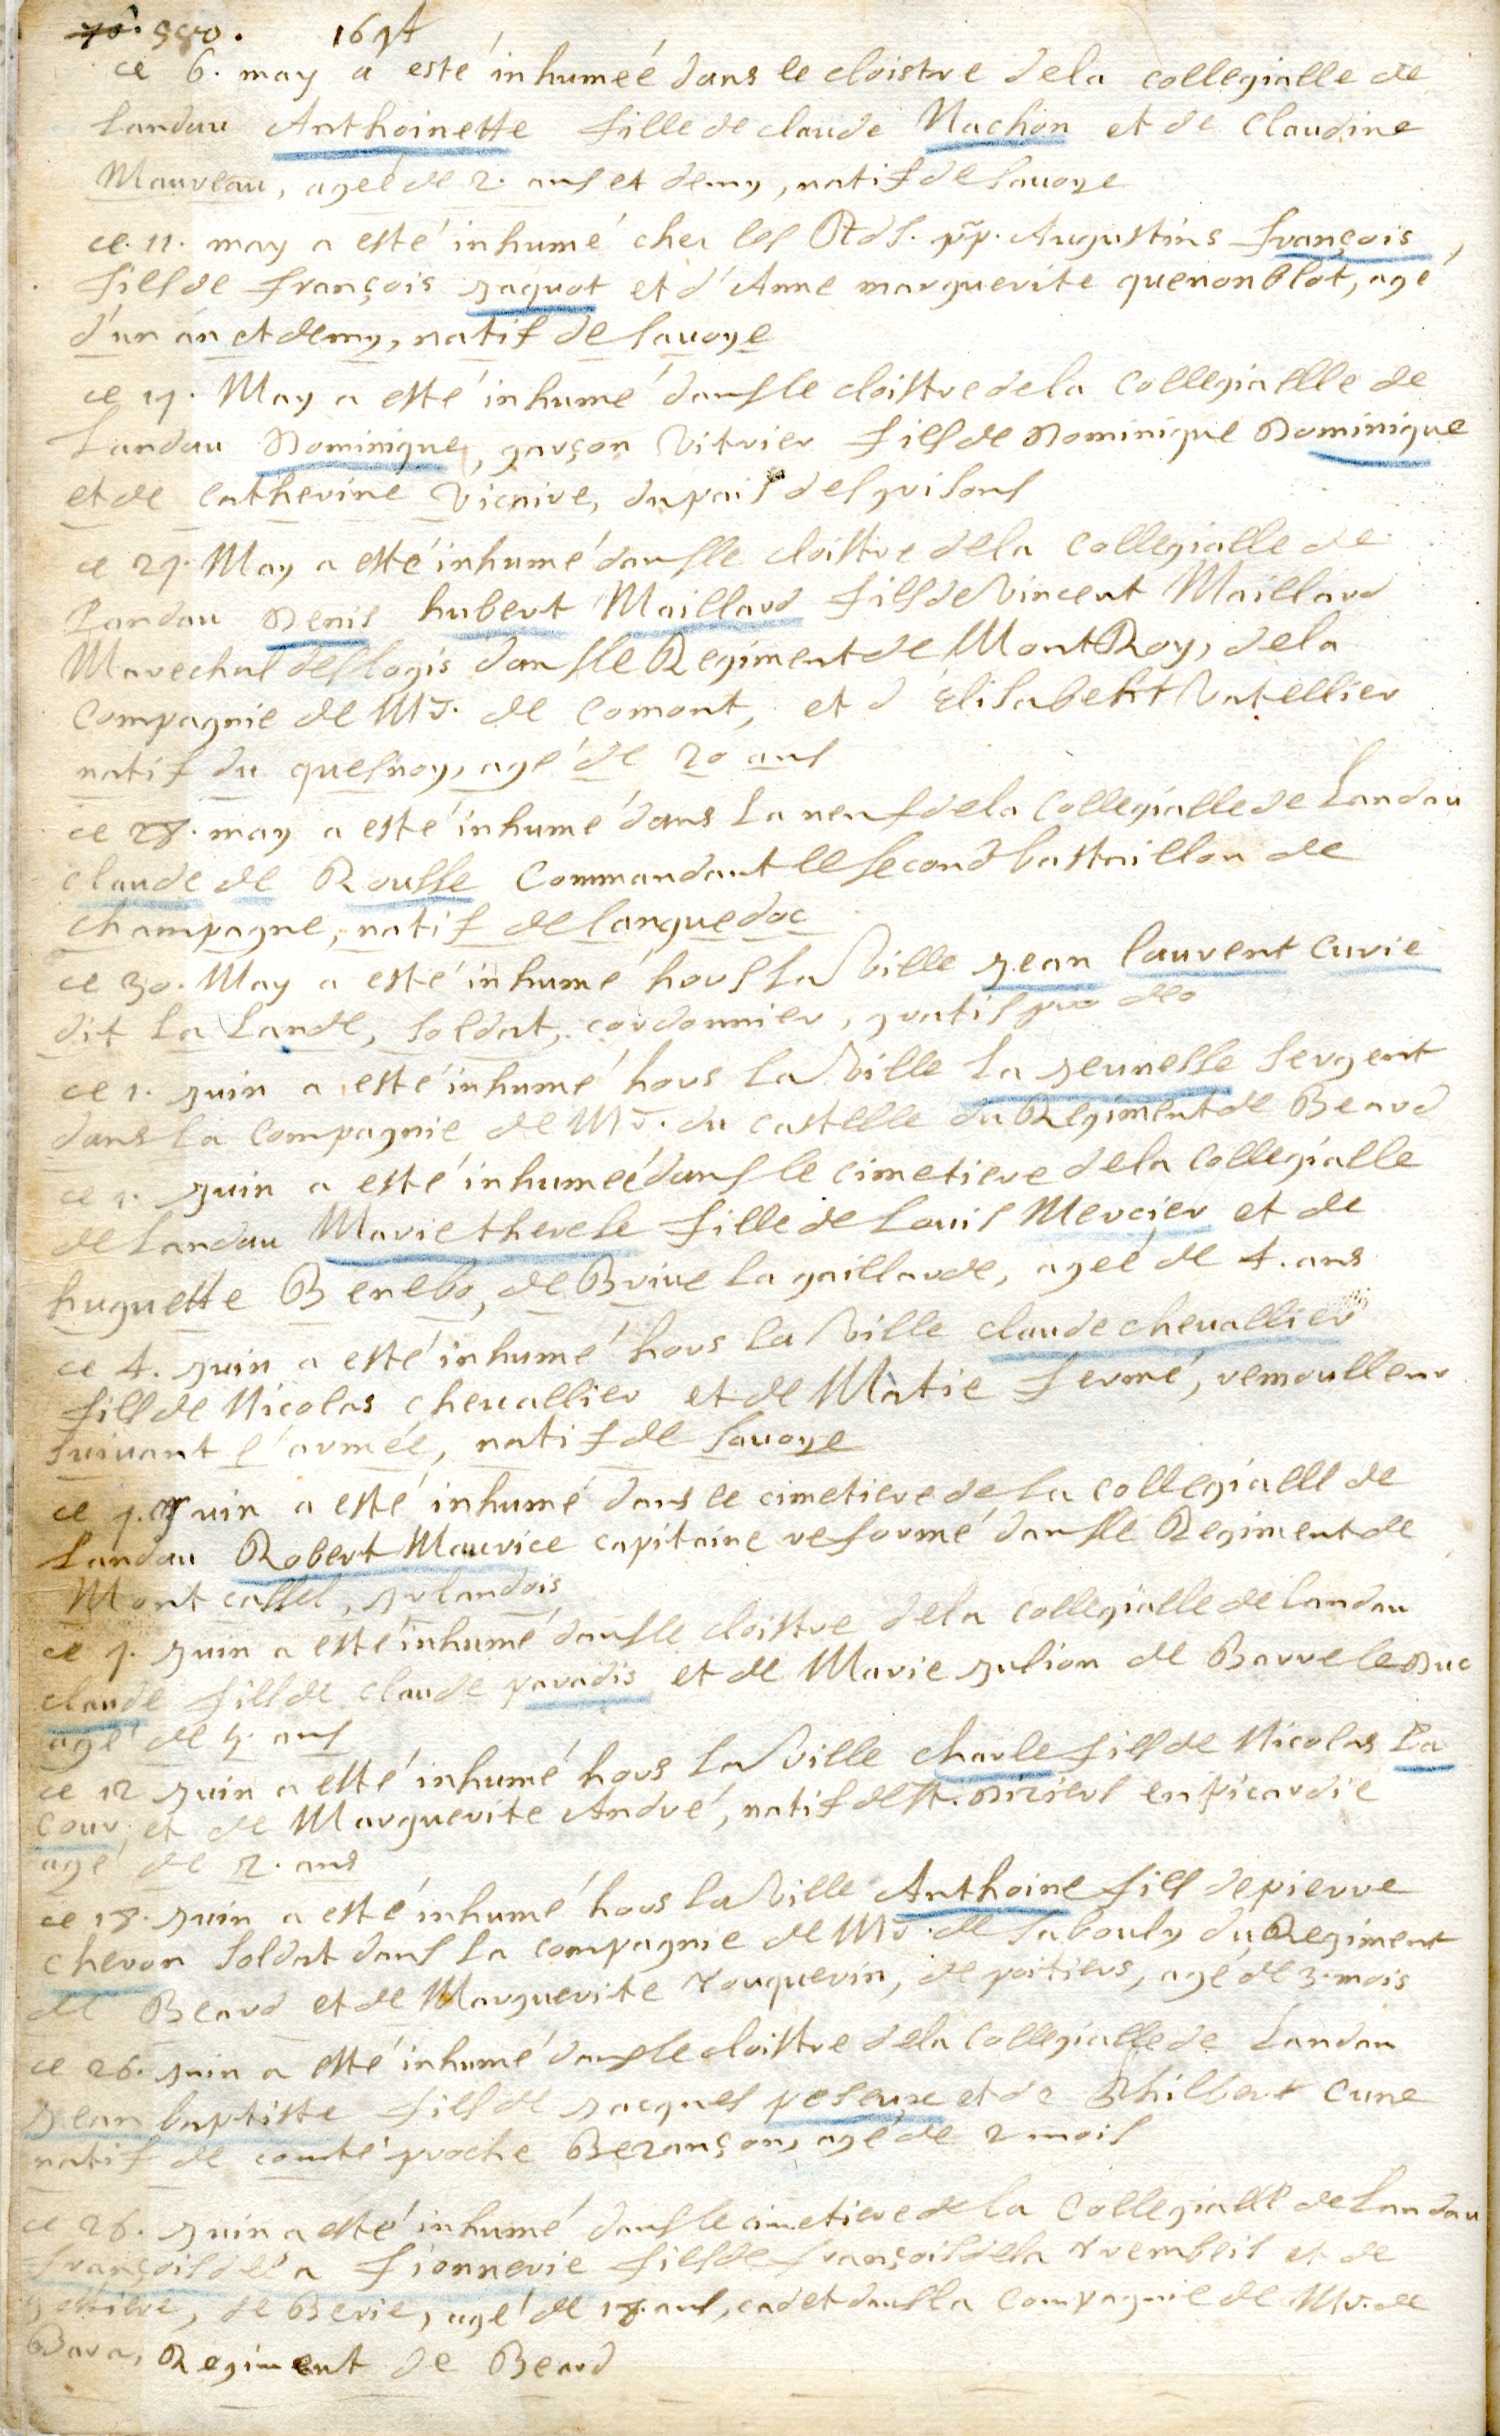 550. 1694
ce 6. may a esté inhumeé dans le cloistre de la collegialle de
Landau Anthoinette fille de claude Nachon et de Claudine
Mauveau, ageé de 2. ans et demy, natif de Savoye
ce. 11. may a esté inhumé cher les Rds. pp. Augustins françois,
fils de françois jaquot et d'Anne marguerite quenonblot, agé
d'un an et demy, natif de Savoye
ce 17. May a esté inhumé dans le cloistre de la Collegialle de
Landau Dominique, garçon Vitrier fils de Dominique Dominique
et de Catherine Vicaire, du pais des grisons
ce 27. May a esté inhumé dans le cloistre de la Collegialle de
Landau Denis hubert Maillard fils de Vincent Maillard
Marechal des logis dans le Regiment de MontRoy, de la
Compagnie de Mr. de Comont, et d'Elisabeht Vatellier
natif du quesnoy, agé de 20 ans
ce 28. may a esté inhumé dans La neuf de la Collegialle de Landau
claude de Rousse Commandant le second bastaillon de
Champagne, natif de languedoc
ce 30. May a esté inhumé hors La Ville jean laurent Curie
dit La Lande, Soldat, cordonnier, gratis pro deo
ce 1. juin a esté inhumé hors La Ville La jeunesse Sergent
dans la Compagnie de Mr. du Castelle du Regiment de Beard
ce 1. juin a esté inhumeé dans le cimetiere de la Collegialle
de Landau Marie therese fille de Louis Mercier et de
huguette Benebo, de Brive la gaillarde, ageé de 4. ans
ce 4. juin a esté inhumé hors la Ville claude chevallier
fils de Nicolas chevallier et de Matie fermé, remoulleur
Suivant l'armée, natif de Savoye
ce 7. juin a esté inhumé dans le cimetiere de la Collegialle de
Landau Robert Maurice capitaine reformé dans le Regiment de
Mont cassel, jrlandois
ce 7. juin a esté inhumé dans le cloistre de la Collegialle de Landau
claude fils de claude paradis et de Marie julion de Barre le Duc
agé de 4. ans
ce 12 juin a esté inhumé hors La Ville Charle fils de Nicolas La
Cour, et de Marguerite André, natif de St. Diziers en picardie
agé de 2. ans
ce 18. juin a esté inhumé hors la Ville Anthoine fils de pierre
cheron Soldat dans La Compagnie de Mr. de Sabouly du Regiment
de Beard et de Marguerite Touquerin, de poitiers, agé de 3. mois
ce 26. juin a esté inhumé dans le cloistre de la Collegialle de Landau
jean baptiste fils de jacques peseuse et de Philbert Cune
natif de comté proche Bezançon, agé de 2 mois
ce 26. juin a esté inhumé dans le cimetiere de la Collegialle de Landau
françois de la fionnerie fils de françois de la Trembeis et de
de Berie, agé de 18. ans, cadet dans la Compagnie de Mr. de
Bara, Regiment de Beard